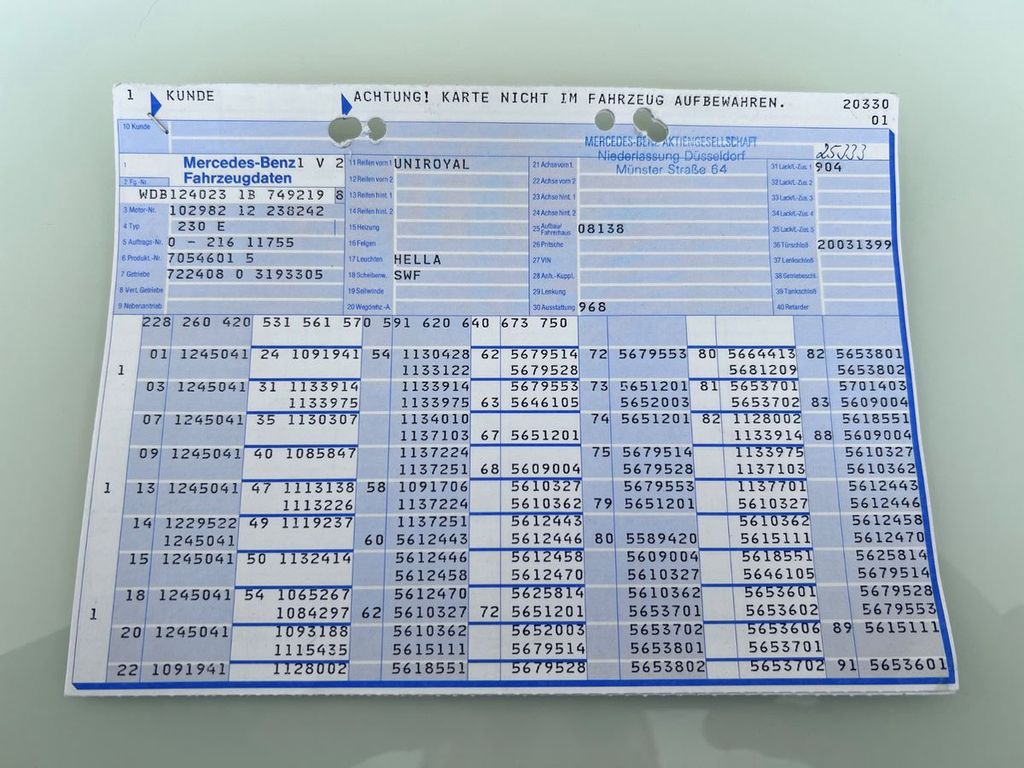 1 KUNDE ACHTUNG! KARTE NICHT IM FAHRZEUG AUFBEWAHREN. 20330
01
10 Kunde MERCEDES-BENZ AKTIENGESELLSCHAFT
Niederlassung Düsseldorf 25333
Münster Straße 64
1 Mercedes-Benz 1 V 2 11 Reifen vorn 1 UNIROYAL 21 Achse vorn 1. 31 Lack/L-Zus. 1 904
2 Fg.-Nr. Fahrzeugdaten 12 Reifen vorn 2 22 Achse vorn 2 32 Lack/L-Zus. 2
WDB124023 1B 749219 8 13 Reifen hint. 1 23 Achse hint. 1 33 Lack/L-Zus. 3
3 Motor-Nr. 102982 12 238242 14 Reifen hint. 2 24 Achse hint. 2 34 Lack/L-Zus. 4
4 Typ 230 E 15 Heizung 25 Aufbau/Fahrerhaus 08138 35 Lack/L-Zus. 5
5 Auftrags-Nr. 0 - 216 11755 16 Felgen 26 Pritsche 36 Türschloß 20031399
6 Produkt.-Nr. 7054601 5 17 Leuchten HELLA 27 VIN 37 Lenkschloß
7 Getriebe 722408 0 3193305 18 Scheibenw. SWF 28 Anh.-Kuppl. 38 Getriebeschl.
8 Vert. Getriebe 19 Seilwinde 29 Lenkung 39 Tankschloß
9 Nebenantrieb 20 Wegdrehz.-A. 30 Ausstattung 968 40 Retarder
228 260 420 531 561 570 591 620 640 673 750
01 1245041 24 1091941 54 1130428 62 5679514 72 5679553 80 5664413 82 5653801
1 1133122 5679528 5681209 5653802
03 1245041 31 1133914 1133914 5679553 73 5651201 81 5653701 5701403
1133975 1133975 63 5646105 5652003 5653702 83 5609004
07 1245041 35 1130307 1134010 74 5651201 82 1128002 5618551
1137103 67 5651201 1133914 88 5609004
09 1245041 40 1085847 1137224 75 5679514 1133975 5610327
1137251 68 5609004 5679528 1137103 5610362
1 13 1245041 47 1113138 58 1091706 5610327 5679553 1137701 5612443
1113226 1137224 5610362 79 5651201 5610327 5612446
14 1229522 49 1119237 1137251 5612443 5610362 5612458
1245041 60 5612443 5612446 80 5589420 5615111 5612470
15 1245041 50 1132414 5612446 5612458 5609004 5618551 5625814
5612458 5612470 5610327 5646105 5679514
18 1245041 54 1065267 5612470 5625814 5610362 5653601 5679528
1 1084297 62 5610327 72 5651201 5653701 5653602 5679553
20 1245041 1093188 5610362 5652003 5653702 5653606 89 5615111
1115435 5615111 5679514 5653801 5653701
22 1091941 1128002 5618551 5679528 5653802 5653702 91 5653601